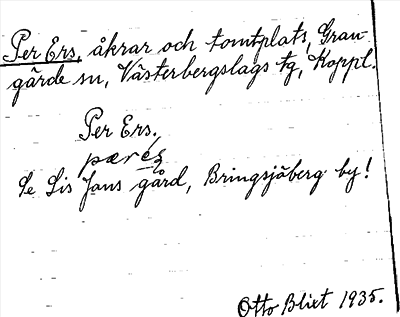 Per Ers, åkrar och tomtplats, Gran-
gärde sn, Västerbergslags tg, Koppl.
Per Ers.
pæres
Se Lis Jans gård, Bringsjöberg by!
Otto Blixt 1935.